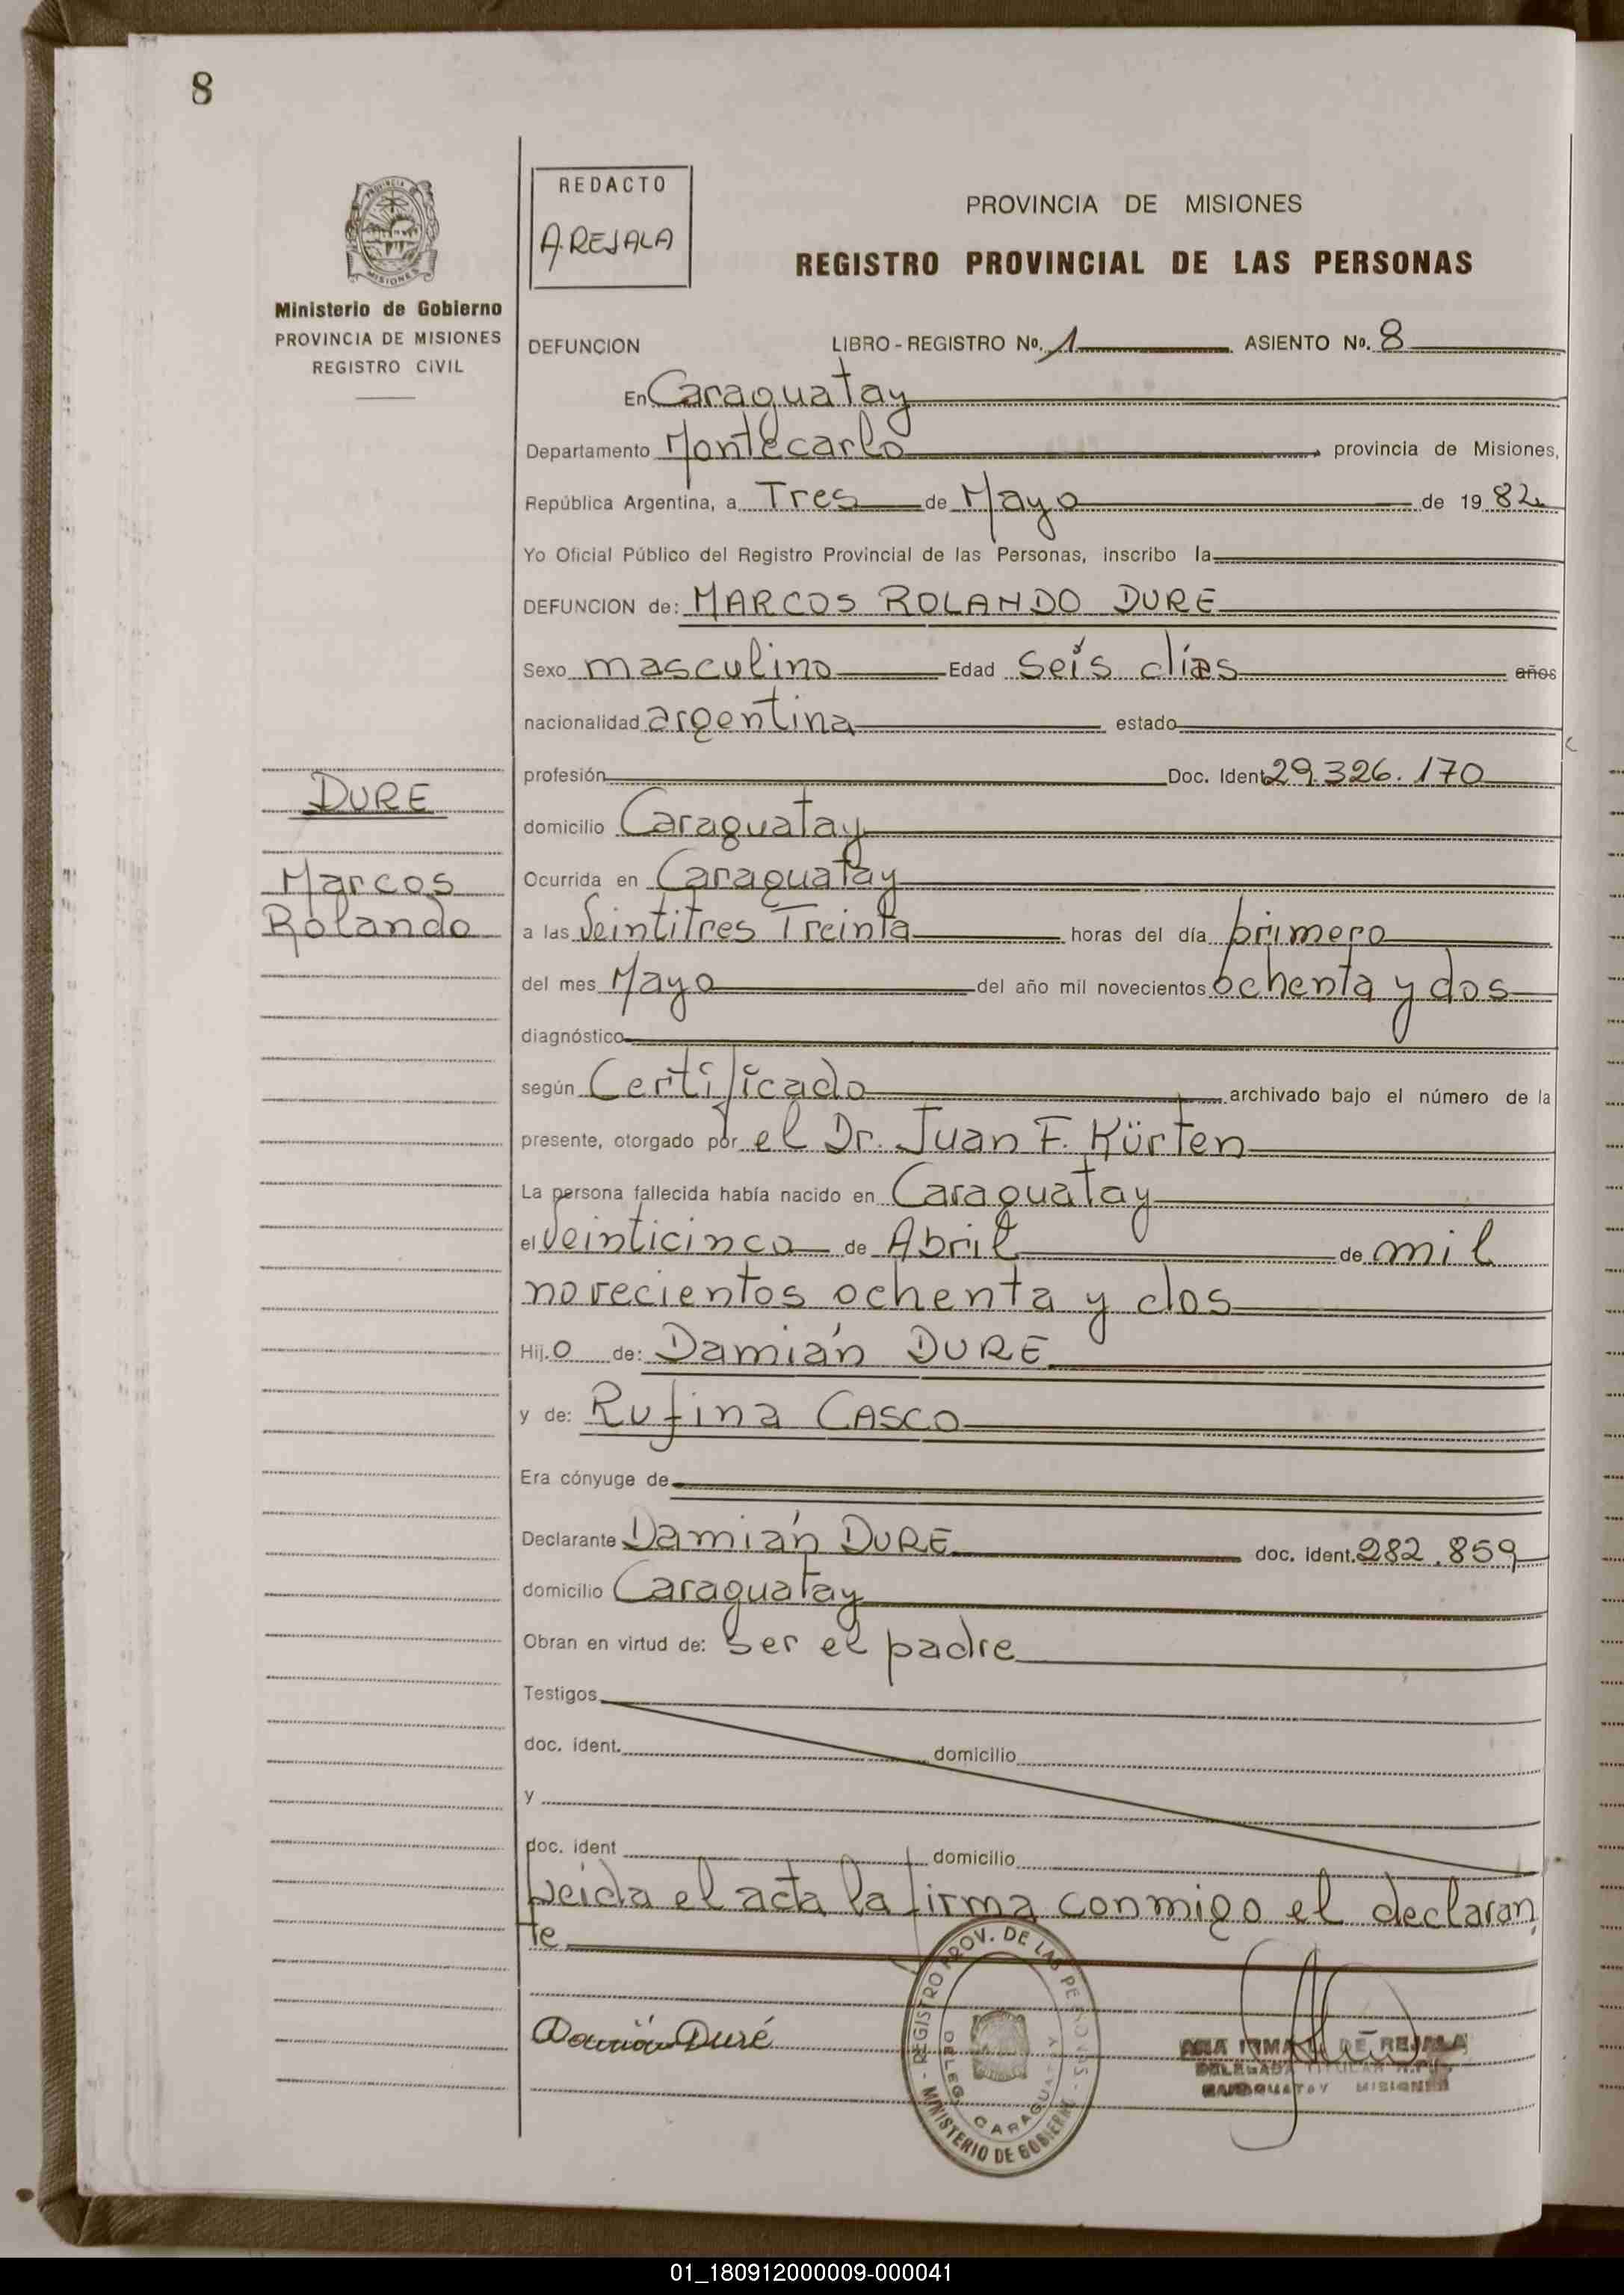 8
REDACTO
A. REJALA
PROVINCIA DE MISIONES
REGISTRO PROVINCIAL DE LAS PERSONAS
Ministerio de Gobierno
PROVINCIA DE MISIONES
REGISTRO CIVIL
DEFUNCION LIBRO - REGISTRO Nº. 1 ASIENTO Nº. 8
En Caraguatay
Departamento Montecarlo, provincia de Misiones,
República Argentina, a Tres de Mayo de 1982
Yo Oficial Público del Registro Provincial de las Personas, inscribo la
DEFUNCION de: MARCOS ROLANDO DURE
Sexo masculino Edad seis días años
nacionalidad argentina estado
profesión Doc. Ident 29.326.170
domicilio Caraguatay
DURE
Marcos
Rolando
Ocurrida en Caraguatay
a las Veintitres Treinta horas del día primero
del mes Mayo del año mil novecientos ochenta y dos
diagnóstico
según Certificado archivado bajo el número de la
presente, otorgado por el Dr. Juan F. Kürten
La persona fallecida había nacido en Caraguatay
el veinticinco de Abril de mil
novecientos ochenta y dos
Hij.o de: Damián DURE
y de: Rufina CASCO
Era cónyuge de
Declarante Damián DURE doc. ident. 282.859
domicilio Caraguatay
Obran en virtud de: ser el padre
Testigos
doc. ident. domicilio
y
doc. ident domicilio
Leida el acta la firma conmigo el declaran
te
Damián Duré
REGISTRO PROV. DE LAS PERSONAS - MINISTERIO DE GOBIERNO -
CARAGUATAY
ANA IRMA DE REJALA
DELEGADA TITULAR
CARAGUATAY MISIONES
01_180912000009-000041